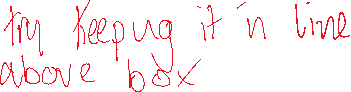 try keeping it in line
above box